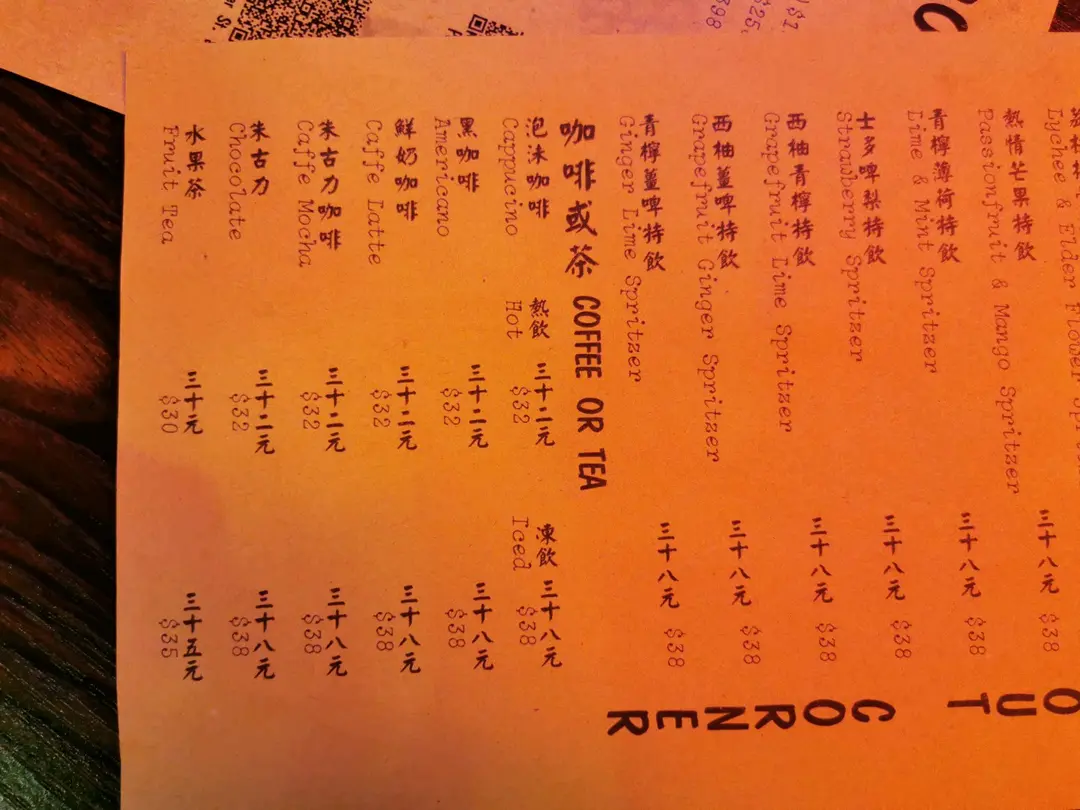 Lychee & Elder Flower
三十八元 $38
熱情芒果特飲
Passionfruit & Mango Spritzer
三十八元 $38
青檸薄荷特飲
Lime & Mint Spritzer
三十八元 $38
士多啤梨特飲
Strawberry Spritzer
三十八元 $38
西柚青檸特飲
Grapefruit Lime Spritzer
三十八元 $38
西柚薑啤特飲
Grapefruit Ginger Spritzer
三十八元 $38
青檸薑啤特飲
Ginger Lime Spritzer
三十八元 $38
咖啡或茶 COFFEE OR TEA
熱飲 凍飲
Hot Iced
泡沫咖啡 三十二元 三十八元
Cappucino $32 $38
黑咖啡 三十二元 三十八元
Americano $32 $38
鮮奶咖啡 三十二元 三十八元
Caffe Latte $32 $38
朱古力咖啡 三十二元 三十八元
Caffe Mocha $32 $38
朱古力 三十二元 三十八元
Chocolate $32 $38
水果茶 三十元 三十五元
Fruit Tea $30 $35
OUT
CORNER